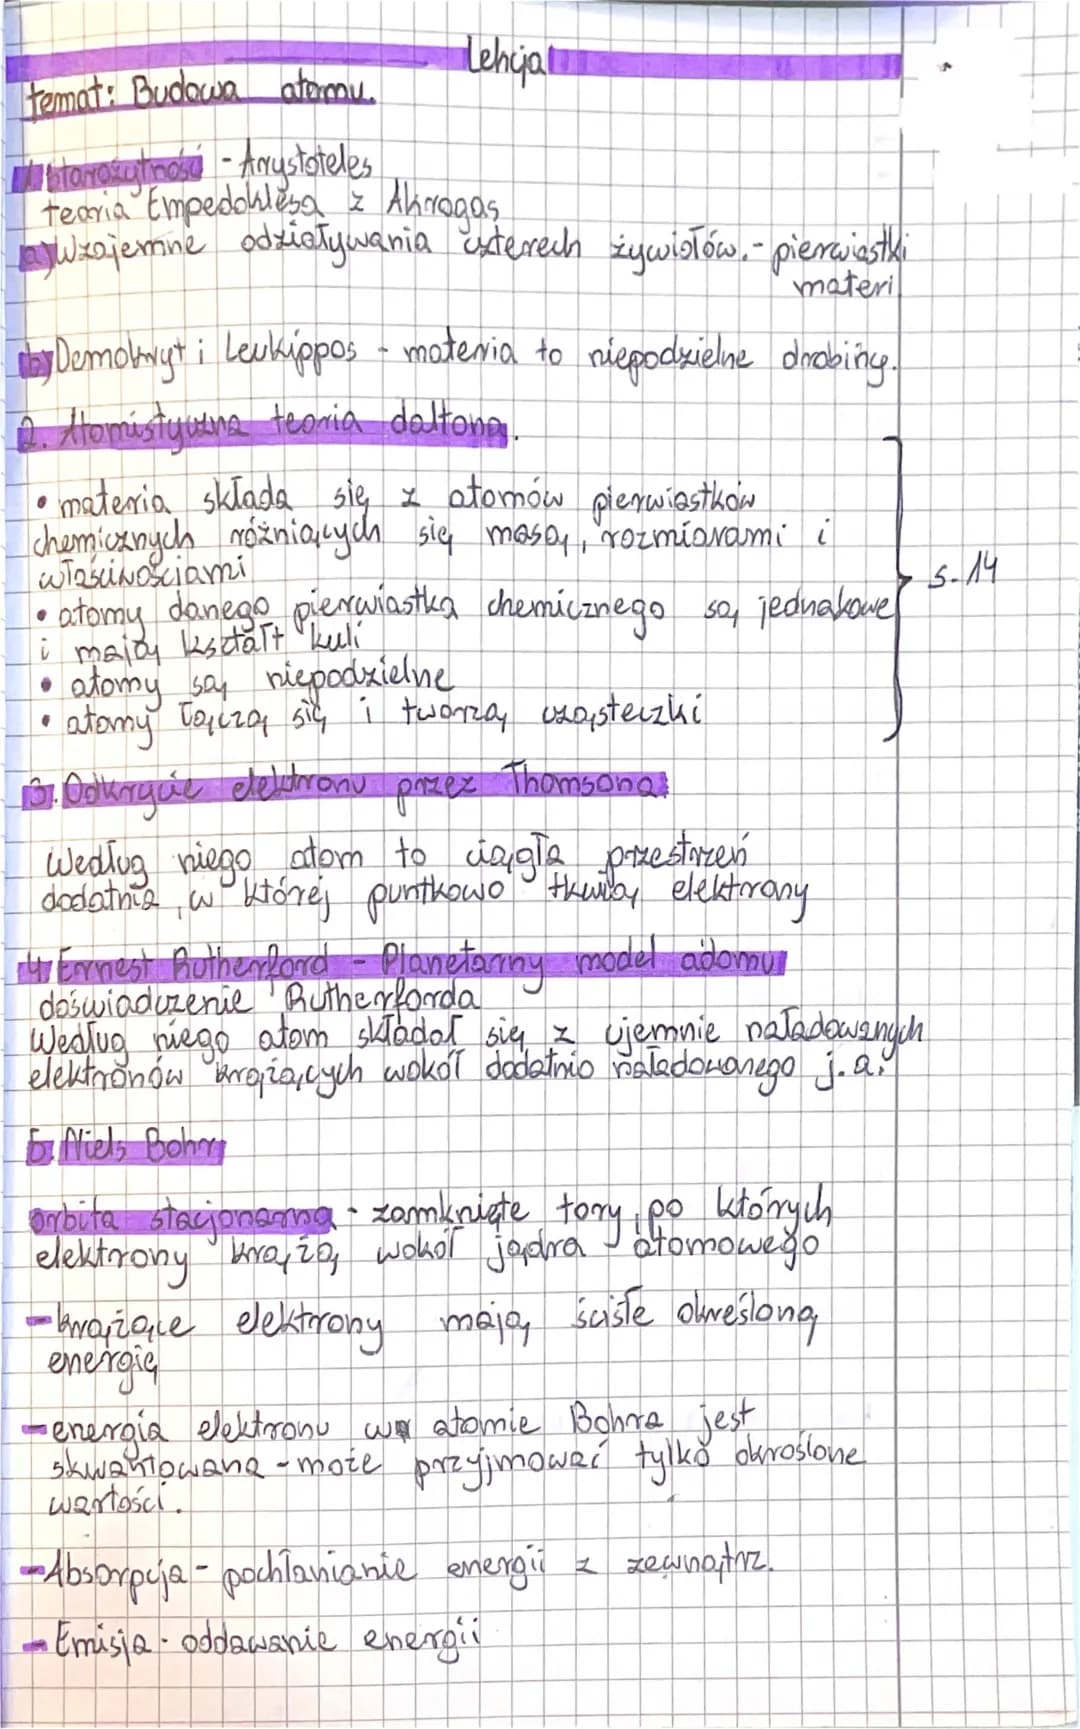 Lekcja
temat: Budowa atomu.
1. Starożytność - Arystoteles
teoria Empedoklesa z Akragas
a) Wzajemne odziaływania czterech żywiołów. - pierwiastki
materi
b) Demokryt i Leukippos - materia to niepodzielne drobiny.
2. Atomistyczna teoria daltona.
• materia składa się z atomów pierwiastków
chemicznych różniących się masą, rozmiarami i
właściwościami
s. 14
• atomy danego pierwiastka chemicznego są jednakowe
i mają kształt kuli
• atomy są niepodzielne
• atomy łączą się i tworzą cząsteczki
3. Odkrycie elektronu przez Thomsona
Według niego atom to ciągła przestrzeń
dodatnia, w której puntkowo tkwiły elektrony
4. Ernest Rutherford - Planetarny model adomu
doświadczenie Rutherforda
Według niego atom składał się z ujemnie naładowanych
elektronów krążących wokół dodatnio naładowanego j.a.
5. Niels Bohr
orbita stacjonarna - zamknięte tory, po których
elektrony krążą wokół jądra atomowego
- krążące elektrony mają ściśle określoną
energię
- energia elektronu w atomie Bohra jest
skwantowana - może przyjmować tylko okroślone
wartości.
- Absorpcja - pochłanianie energii z zewnątrz.
- Emisja - oddawanie energii